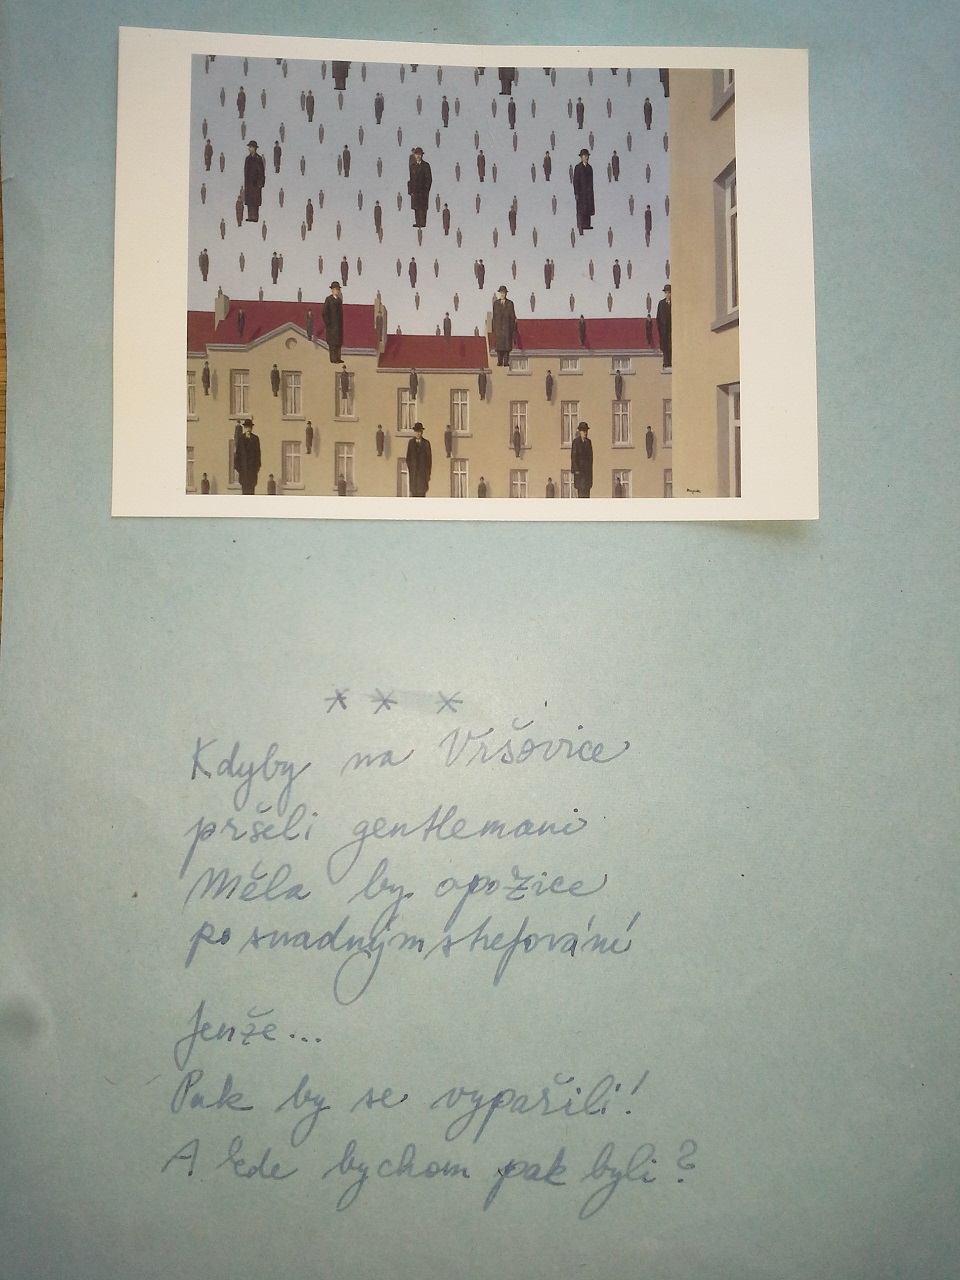 * * *
Kdyby na Vršovice
pršeli gentlemani
Měla by opozice
po snadným strefování
Jenže...
Pak by se vypařili!
A kde bychom pak byli?